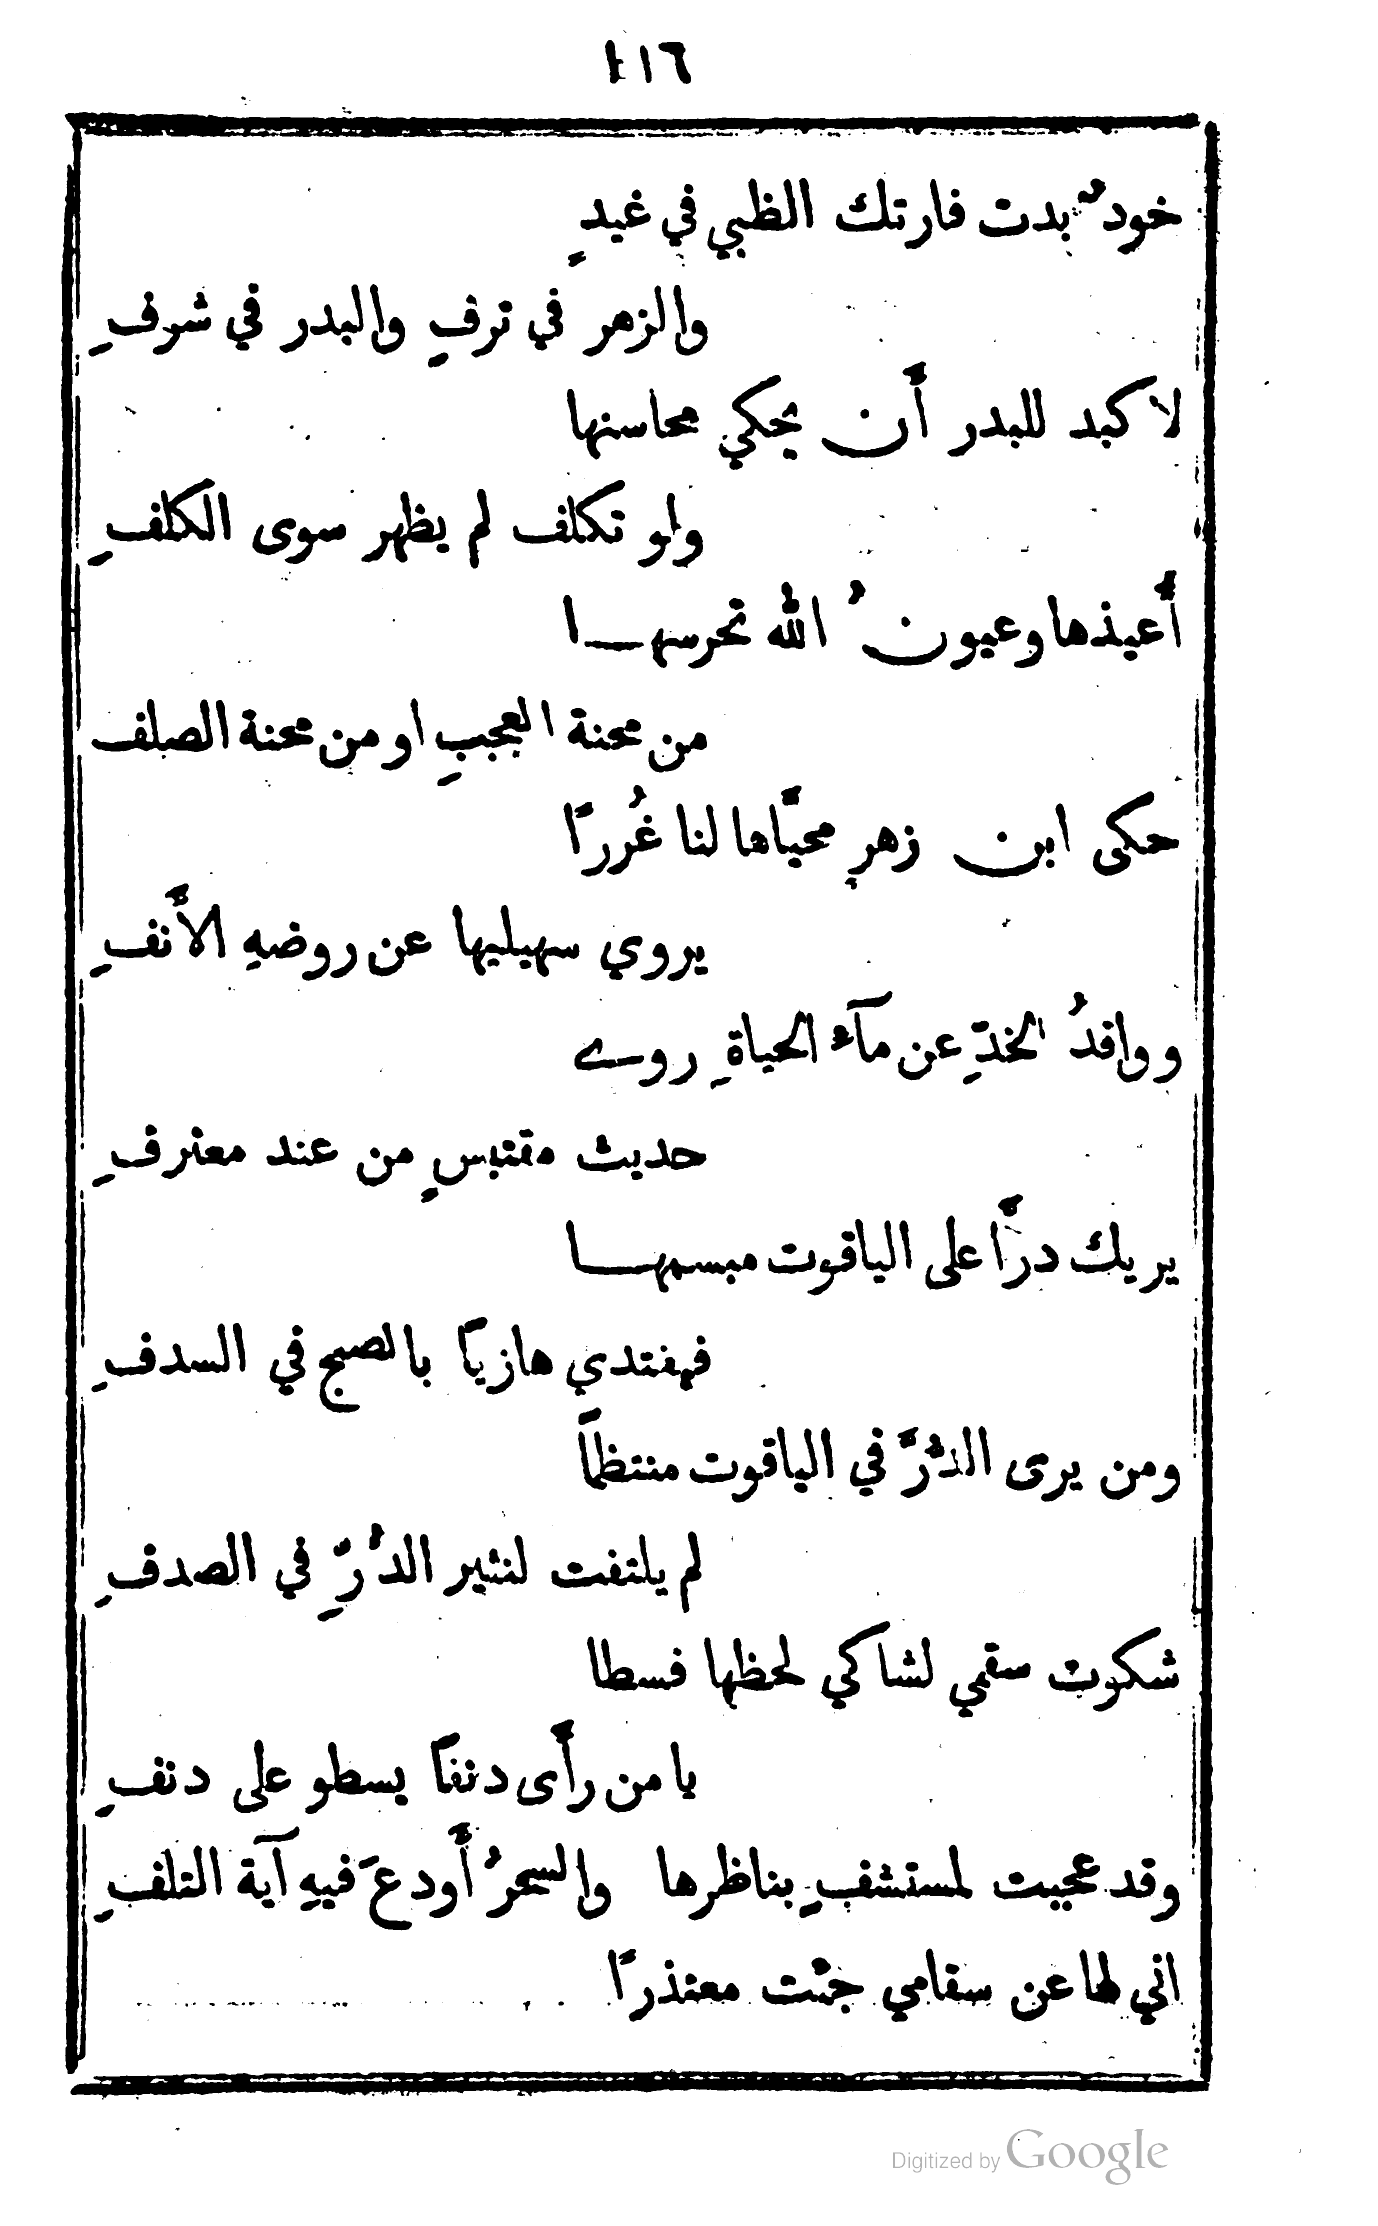 ١١٦
خودٌ بدت فارتك الظبي في غيدٍ
والزهر في ترفٍ والبدر في شرفِ
لا كبد للبدر أَن يحكي محاسنها
ولو تكلف لم يظهر سوى الكلفِ
أَعيذها وعيونُ الله تحرسهـــا
من محنة العجبِ او من محنة الصلف
حكى ابن زهرٍ محيَّاها لنا غُررًا
يروي سهيليها عن روضهِ الأَنفِ
ووافدُ الخدِّ عن مآء الحياةِ روے
حديث مقتبسٍ من عند مغترفِ
يريك درًّا على الياقوت مبسمهـــا
فيغتدي هازيًا بالصبح في السدفِ
ومن يرى الدُرَّ في الياقوت منتظمًا
لم يلتفت لنثير الدُرِّ في الصدفِ
شكوت سقمي لشاكي لحظها فسطا
يا من رأَى دنفًا يسطو على دنفِ
وقد عجبت لمستشفٍ بناظرها والسحرُ أَودعَ فيهِ آية التلفِ
اني لها عن سقامي جئت معتذرًا
Digitized by Google